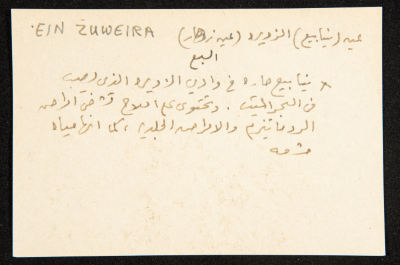 EIN ZUWEIRA
عين (ينابيع) الزويره (عين زوهار)
البع
ينابيع حاره في وادي الزويره الذي يصب
في البحر الميت. وتحتوي على املاح تشفي امراض
الروماتيزم والامراض الجلديه، كما انها مياه
مشعه